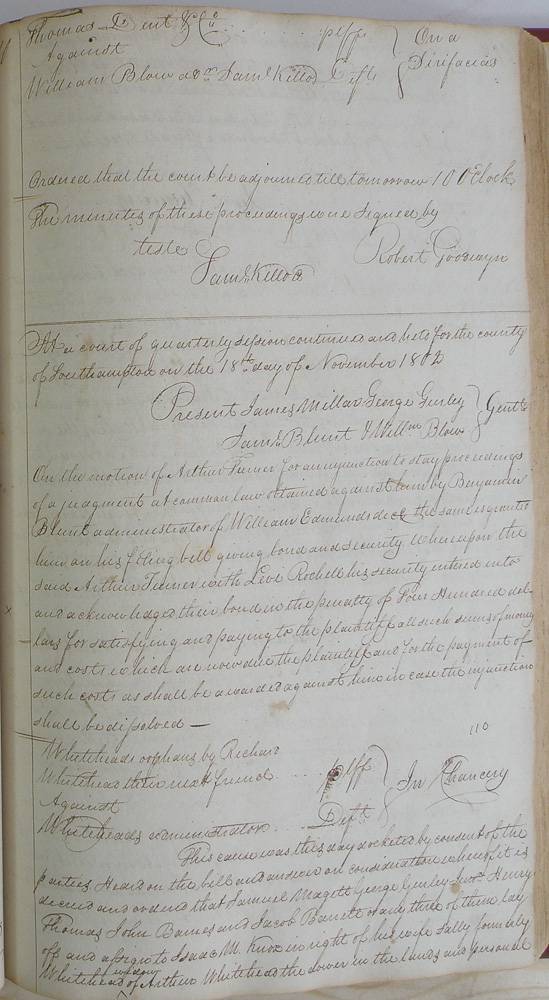 Thomas Dent & Co plff } On a
Against
William Blow adm Saml Kello Deft } Sirifacias
Ordered that the court be adjourned till tomorrow 10 OClock
The minutes of these proceedings were signed by
teste Robert Goodwyn
Saml Kello
At a court of quarterly session continued and held for the county
of Southampton on the 18th day of November 1802
Present James Millar George Gurley } Gent
Saml Blunt & Willm Blow
On the motion of Arthur Turner for an injunction to stay proceedings
of a judgment at common law obtained against him by Benjamin
Blunt administrator of William Edmunds decd the same is granted
him on his filing bill giving bond and security Whereupon the
said Arthur Turner with Levi Rochell his security entered into
and acknowledged their bond in the penalty of Four Hundred dol-
lars for satisfying and paying to the plaintiff all such sums of money
and costs which are now due the plaintiff and for the payment of
such costs as shall be awarded against him in case the injunction
shall be dissolved —
110
Whiteheads orphans by Richard
Whitehead their next friend plff } In Chancery
Against
Whiteheads administrator Deft
This cause was this day docketed by consent of the
parties Heard on the bill and answer on consideration whereof it is
decreed and ordered that Samuel Magett George Gurley Henry
Thomas John Barnes and Jacob Barrett or any three of them lay
off and assign to Isaac M. in right of his wife Sally formerly
widow
Whitehead of Arthur Whitehead the dower in the lands and personal